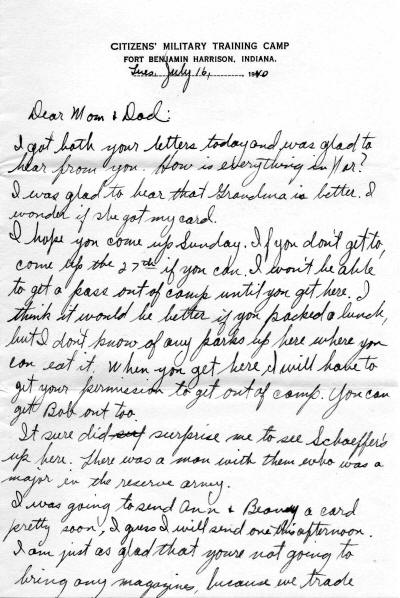 CITIZENS' MILITARY TRAINING CAMP
FORT BENJAMIN HARRISON, INDIANA.
Tues. July 16, 1940
Dear Mom & Dad:
I got both your letters today and was glad to
hear from you. How is everything in
I was glad to hear that Grandma is better. I
wonder if she got my card.
I hope you come up Sunday. If you don't get to,
come up the 27th if you can. I won't be able
to get a pass out of camp until you get here. I
think it would be better if you packed a lunch,
but I don't know of any parks up here where you
can eat it. When you get here, I will have to
get your permission to get out of camp. You can
get Bob out too.
It sure did surprise me to see Schaeffer's
up here. There was a man with them who was a
major in the reserve army.
I was going to send Ann & a card
pretty soon, I guess I will send one this afternoon.
I am just as glad that youre not going to
bring any magazines, because we trade